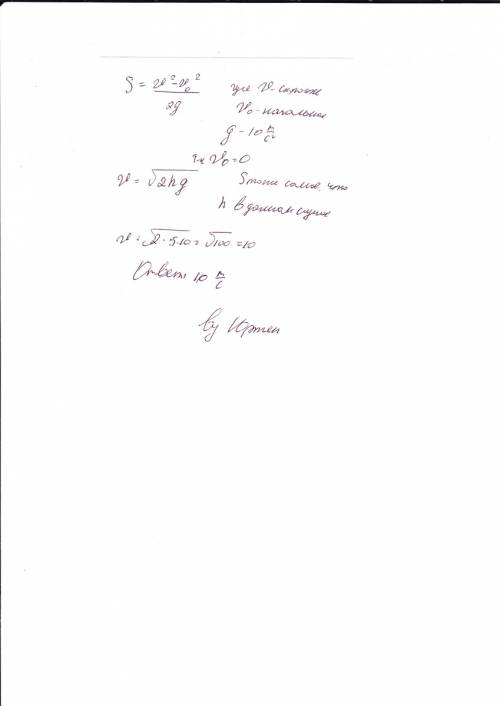 S = v² - v₀² / 2g где v -
v₀ - начальная
g - 10 м/с²
т.к v₀ = 0
v = √2hg S тоже самое, что
h в данном случае
v = √2·5·10 = √100 = 10
Ответ: 10 м/с
by